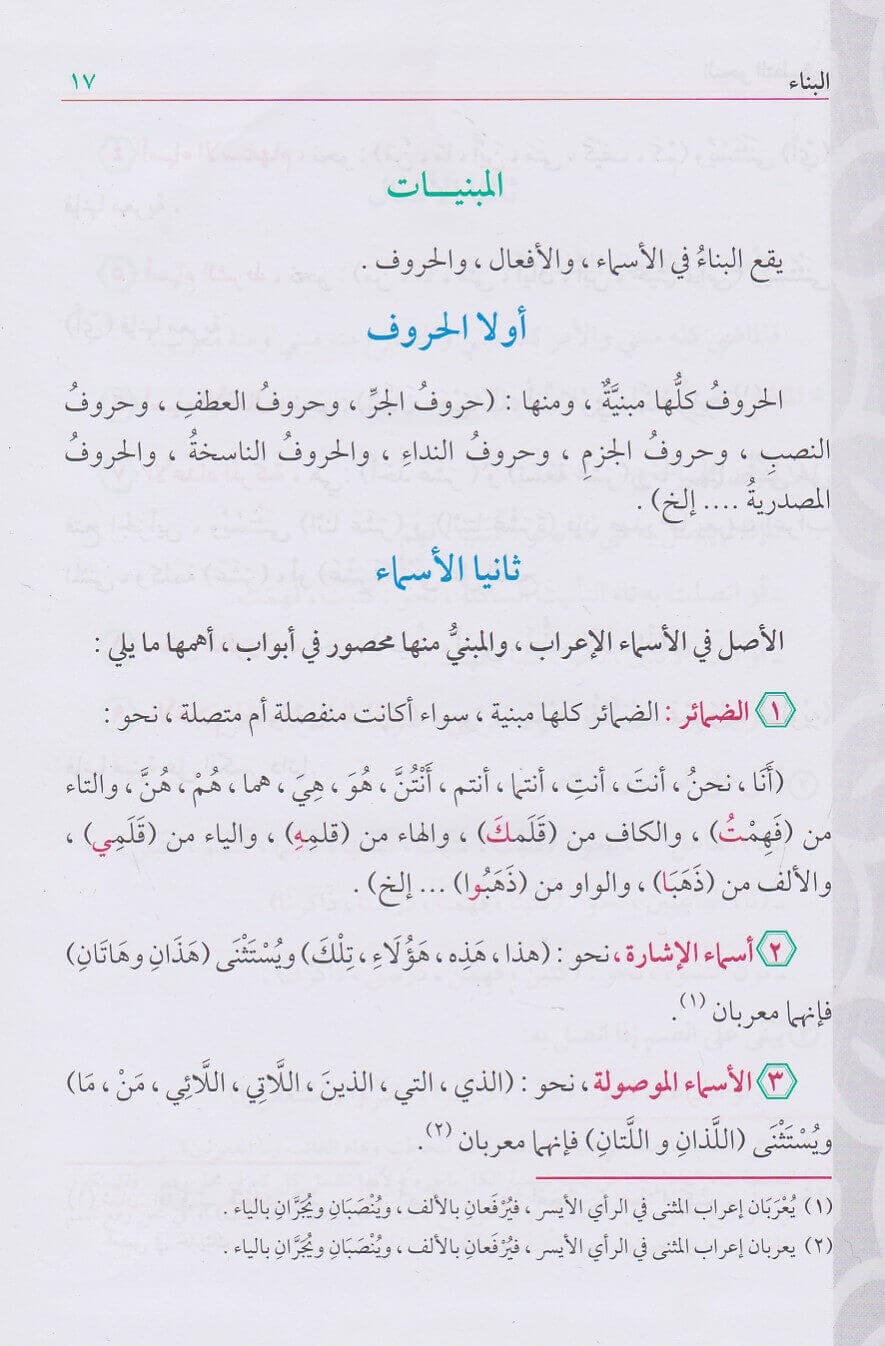 البناء
١٧
المبنيـــات
يقع البناءُ في الأسماء ، والأفعال ، والحروف .
أولا الحروف
الحروفُ كلُّها مبنيَّةٌ ، ومنها : (حروفُ الجرِّ ، وحروفُ العطفِ ، وحروفُ
النصبِ ، وحروفُ الجزمِ ، وحروفُ النداءِ ، والحروفُ الناسخةُ ، والحروفُ
المصدريةُ .... إلخ) .
ثانيا الأسماء
الأصل في الأسماء الإعراب ، والمبنيُّ منها محصور في أبواب ، أهمها ما يلي :
١ الضمائر : الضمائر كلها مبنية ، سواء أكانت منفصلة أم متصلة ، نحو :
(أَنَا ، نحنُ ، أنتَ ، أنتِ ، أنتما ، أنتم ، أَنْتُنَّ ، هُوَ ، هِيَ ، هما ، هُمْ ، هُنَّ ، والتاء
من (فَهِمْتُ) ، والكاف من (قَلَمكَ) ، والهاء من (قلمِهِ) ، والياء من (قَلَمِي) ،
والألف من (ذَهَبَا) ، والواو من (ذَهَبُوا) ... إلخ) .
٢ أسماء الإشارة ، نحو : (هذا ، هَذِه ، هَؤُلَاءِ ، تِلْكَ) ويُسْتَثْنَى (هَذَانِ وهَاتَانِ)
فإنهما معربان (١).
٣ الأسماء الموصولة ، نحو : (الذي ، التي ، الذينَ ، اللَّاتِي ، اللَّائِي ، مَنْ ، مَا)
ويُسْتَثْنَى (اللَّذانِ و اللَّتانِ) فإنهما معربان (٢).
(١) يُعْرَبَان إعراب المثنى في الرأي الأيسر ، فيُرْفَعانِ بالألف ، ويُنْصَبَانِ ويُجَرَّانِ بالياء .
(٢) يعربان إعراب المثنى في الرأي الأيسر ، فيُرْفَعانِ بالألف ، ويُنْصَبَانِ ويُجَرَّانِ بالياء .